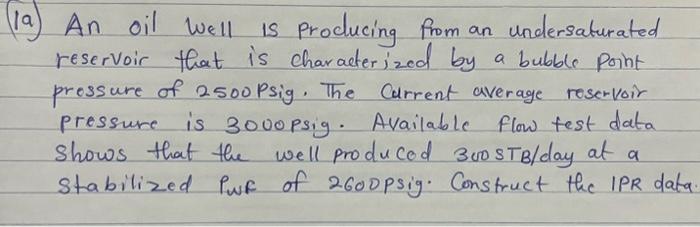 (1a) An oil well is producing from an undersaturated
reservoir that is characterized by a bubble point
pressure of 2500 psig. The Current average reservoir
pressure is 3000 psig. Available flow test data
Shows that the well produced 300 STB/day at a
Stabilized Pwf of 2600 psig. Construct the IPR data.